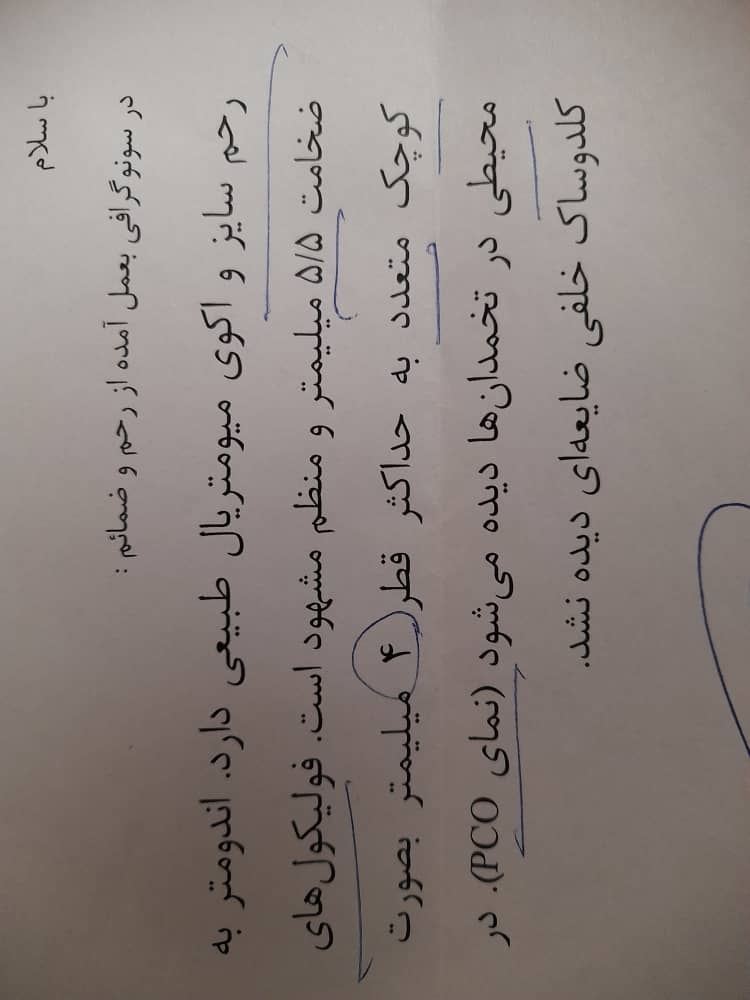 با سلام
در سونوگرافی بعمل آمده از رحم و ضمائم :
رحم سایز و اکوی میومتریال طبیعی دارد. اندومتر به
ضخامت ۵/۵ میلیمتر و منظم مشهود است. فولیکول‌های
کوچک متعدد به حداکثر قطر ۴ میلیمتر بصورت
محیطی در تخمدان‌ها دیده می‌شود (نمای PCO). در
کلدوساک خلفی ضایعه‌ای دیده نشد.